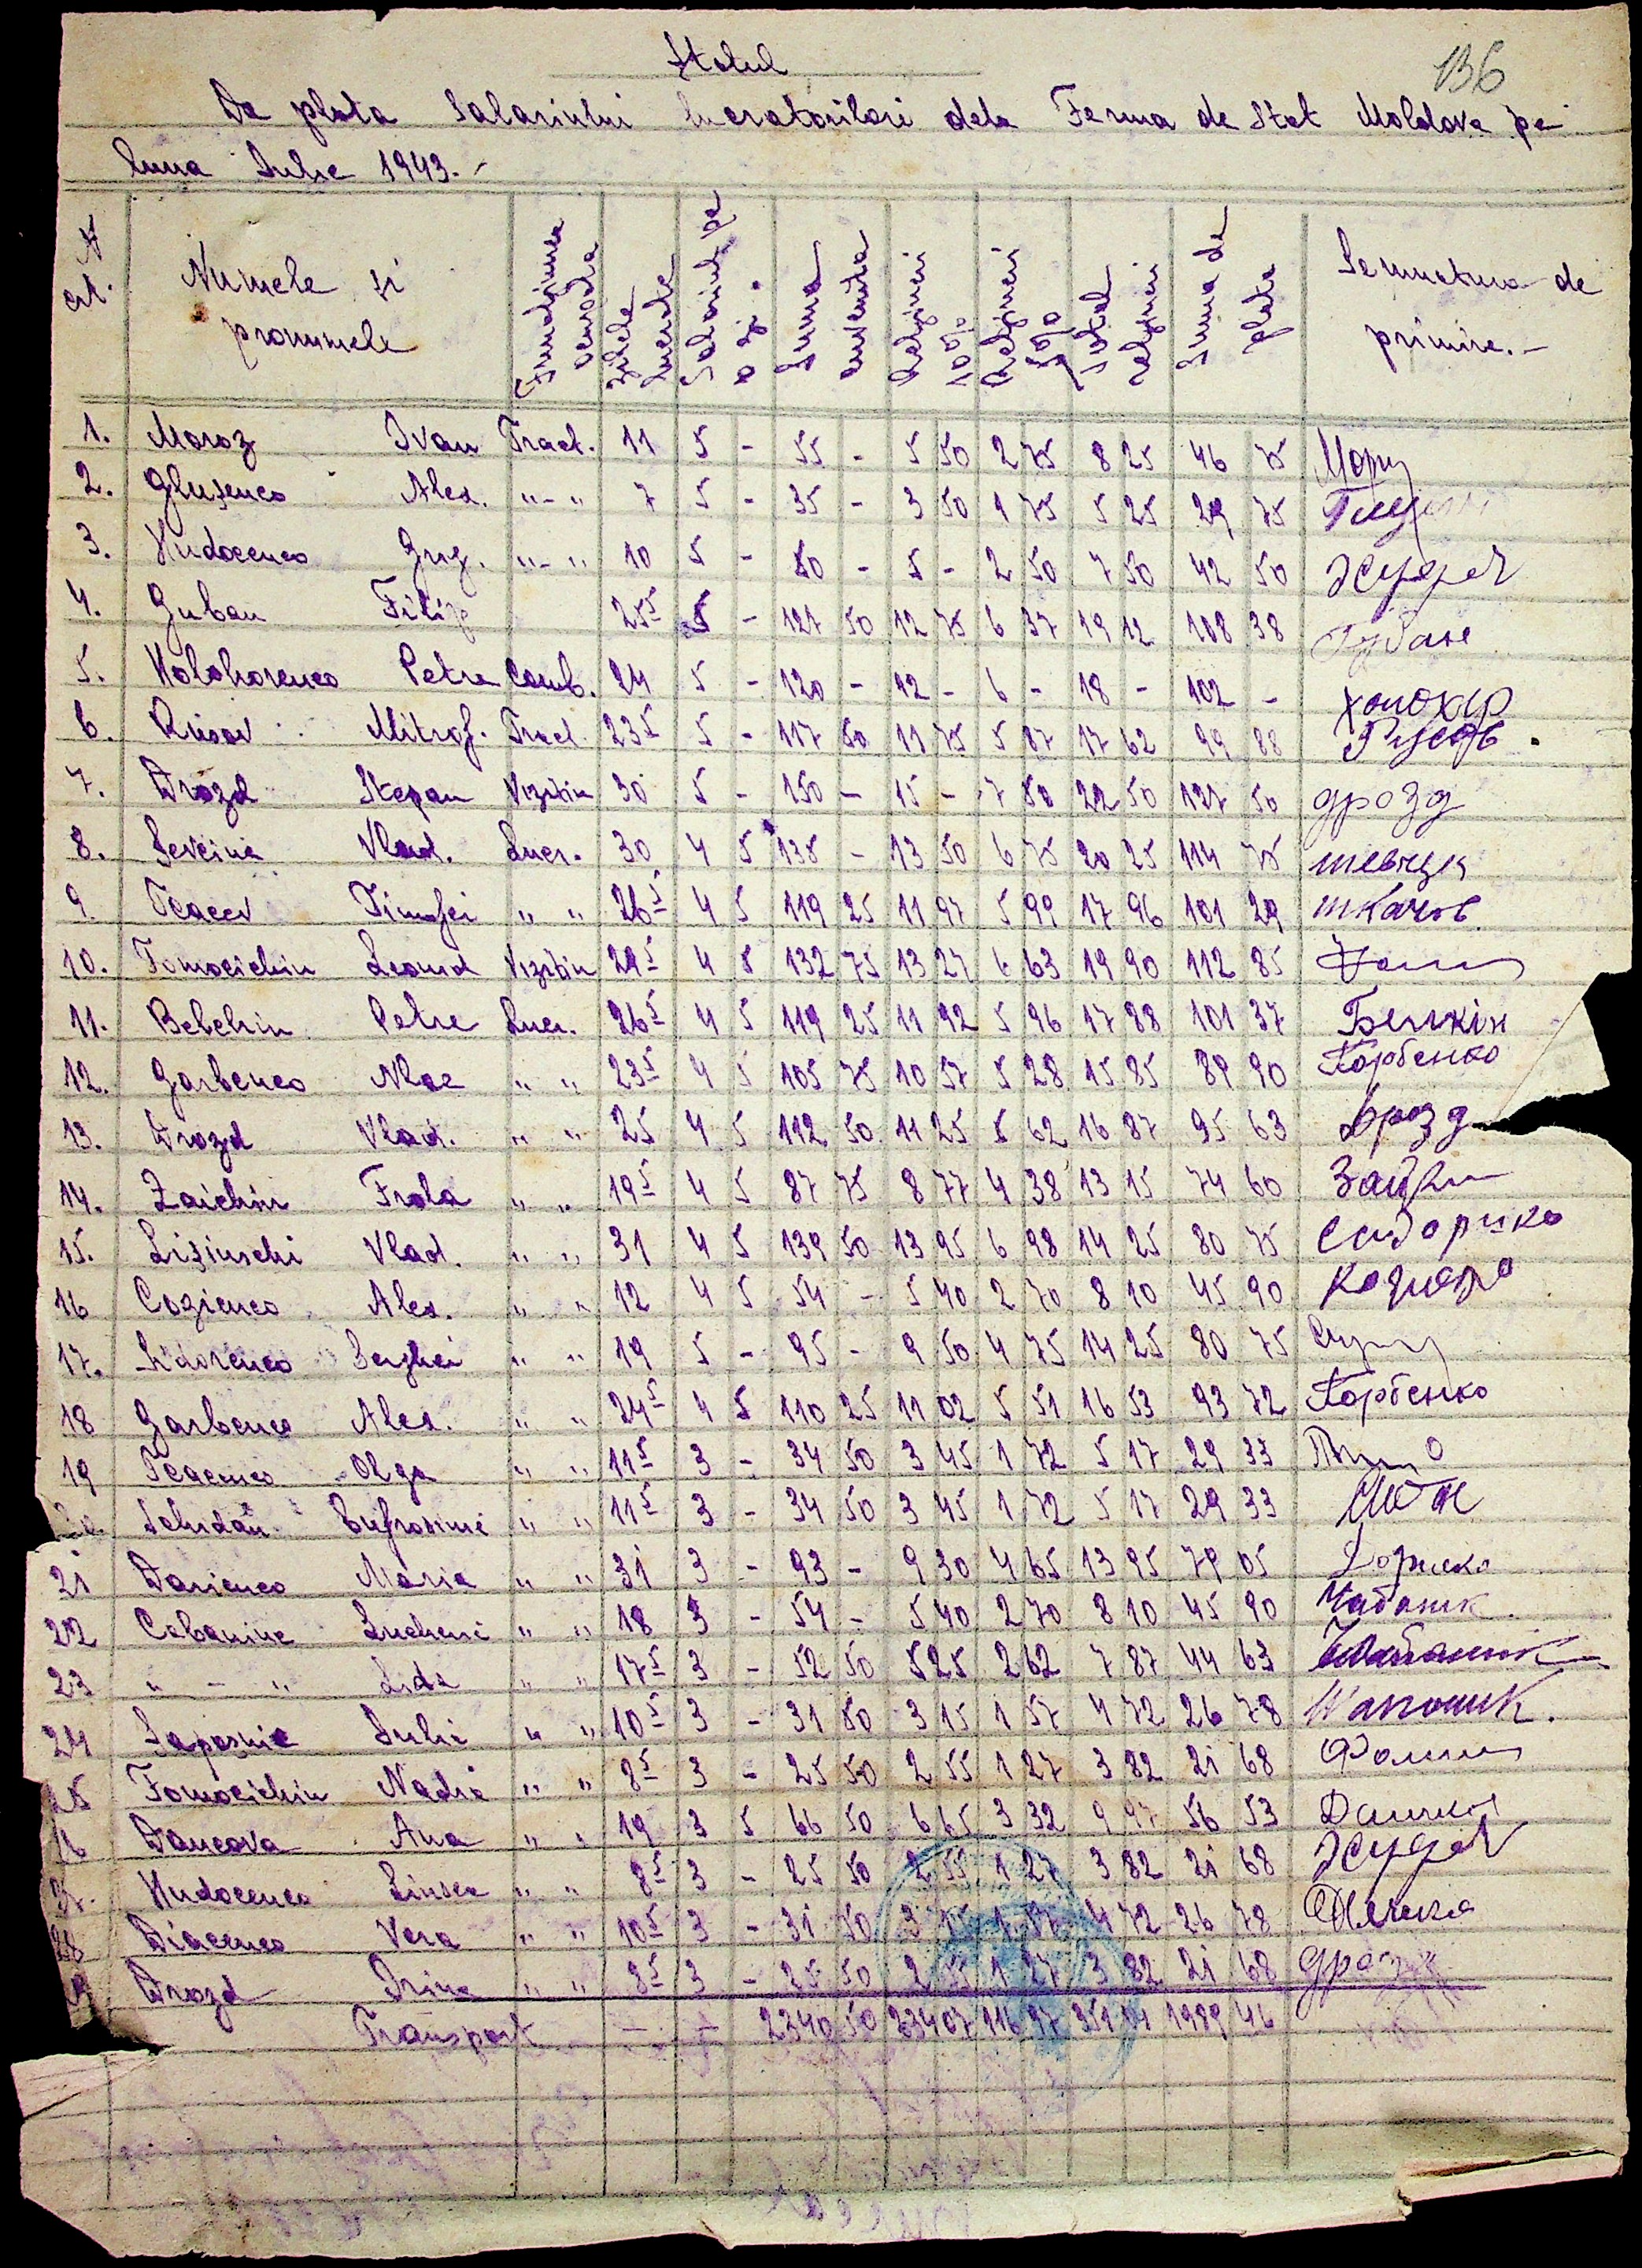 136
Statul
De plata Salariului lucratorilor dela Ferma de Stat Moldova pe
luna Iulie 1943.-
N crt. Numele si pronumele Functiunea Zilele lucrate Salariul pe o zi. Suma cuvenita Retineri 10% Retineri 5% Total retineri Suma de plata Semnatura de primire.-
1. Moroz Ivan Tract. 11 5 - 55 - 5 50 2 75 8 25 46 75 Мороз
2. Glusenco Alex. "-" 7 5 - 35 - 3 50 1 75 5 25 29 75
3. Hudocenco Grig. "-" 10 5 - 50 - 5 - 2 50 7 50 42 50 Худоч
4. Guban Filip 25 5 5 - 127 50 12 75 6 37 19 12 108 38 Губан
5. Holohorenco Petre Comb. 24 5 - 120 - 12 - 6 - 18 - 102 - Холохор
6. Rusov Mitrof. Tract. 23 5 5 - 117 50 11 75 5 87 17 62 99 88 Русов.
7. Drozd Stepan Vizitiu 30 5 - 150 - 15 - 7 50 22 50 127 50 дрозд
8. Sevciuc Vlad. Lucr. 30 4 5 135 - 13 50 6 75 20 25 114 75 шевчук
9. Tcacev Timofei " " 26 5 4 5 119 25 11 97 5 99 17 96 101 29 ткачов
10. Fomocichin Leonid Vizitiu 29 5 4 5 132 75 13 27 6 63 19 90 112 85
11. Belchin Petre Lucr. 26 5 4 5 119 25 11 92 5 96 17 88 101 37 Белкін
12. Garbenco Nlae " " 23 5 4 5 105 75 10 57 5 28 15 85 89 90 Горбенко
13. Drozd Vlad. " " 25 4 5 112 50 11 25 5 62 16 87 95 63 Дрозд
14. Zaichin Frola " " 19 5 4 5 87 75 8 77 4 38 13 15 74 60
15. Lisinschi Vlad. " " 31 4 5 139 50 13 95 6 98 14 25 80 75
16 Cozienco Alex. " " 12 4 5 54 - 5 40 2 70 8 10 45 90
17. Sidorenco Serghei " " 19 5 - 95 - 9 50 4 75 14 25 80 75
18 Garbenco Alex. " " 24 5 4 5 110 25 11 02 5 51 16 53 93 72 Горбенко
19 Tcacenco Olga " " 11 5 3 - 34 50 3 45 1 72 5 17 29 33
Schidan Eufrosinie " " 11 5 3 - 34 50 3 45 1 72 5 17 29 33
21 Darienco Maria " " 31 3 - 93 - 9 30 4 65 13 95 79 05
22 Cebaniuc Luchesi " " 18 3 - 54 - 5 40 2 70 8 10 45 90 Чабанюк.
23 " - " Lida " " 17 5 3 - 52 50 5 25 2 62 7 87 44 63 Чабанюк
24 Saposnic Iulie " " 10 5 3 - 31 50 3 15 1 57 4 72 26 78 Шапошник.
25 Fomocichin Nadia " " 8 5 3 - 25 50 2 55 1 27 3 82 21 68
Dancova Ana " " 19 3 5 66 50 6 65 3 32 9 97 56 53
Hudocenco Linsca " " 8 5 3 - 25 50 2 55 1 27 3 82 21 68 Худоч
Diacenco Vera " " 10 5 3 - 31 50 3 15 1 57 4 72 26 78
Drozd Irina " " 8 5 3 - 25 50 2 55 1 27 3 82 21 68 дрозд
Transport - - 2340 50 234 07 116 97 351 04 1989 46